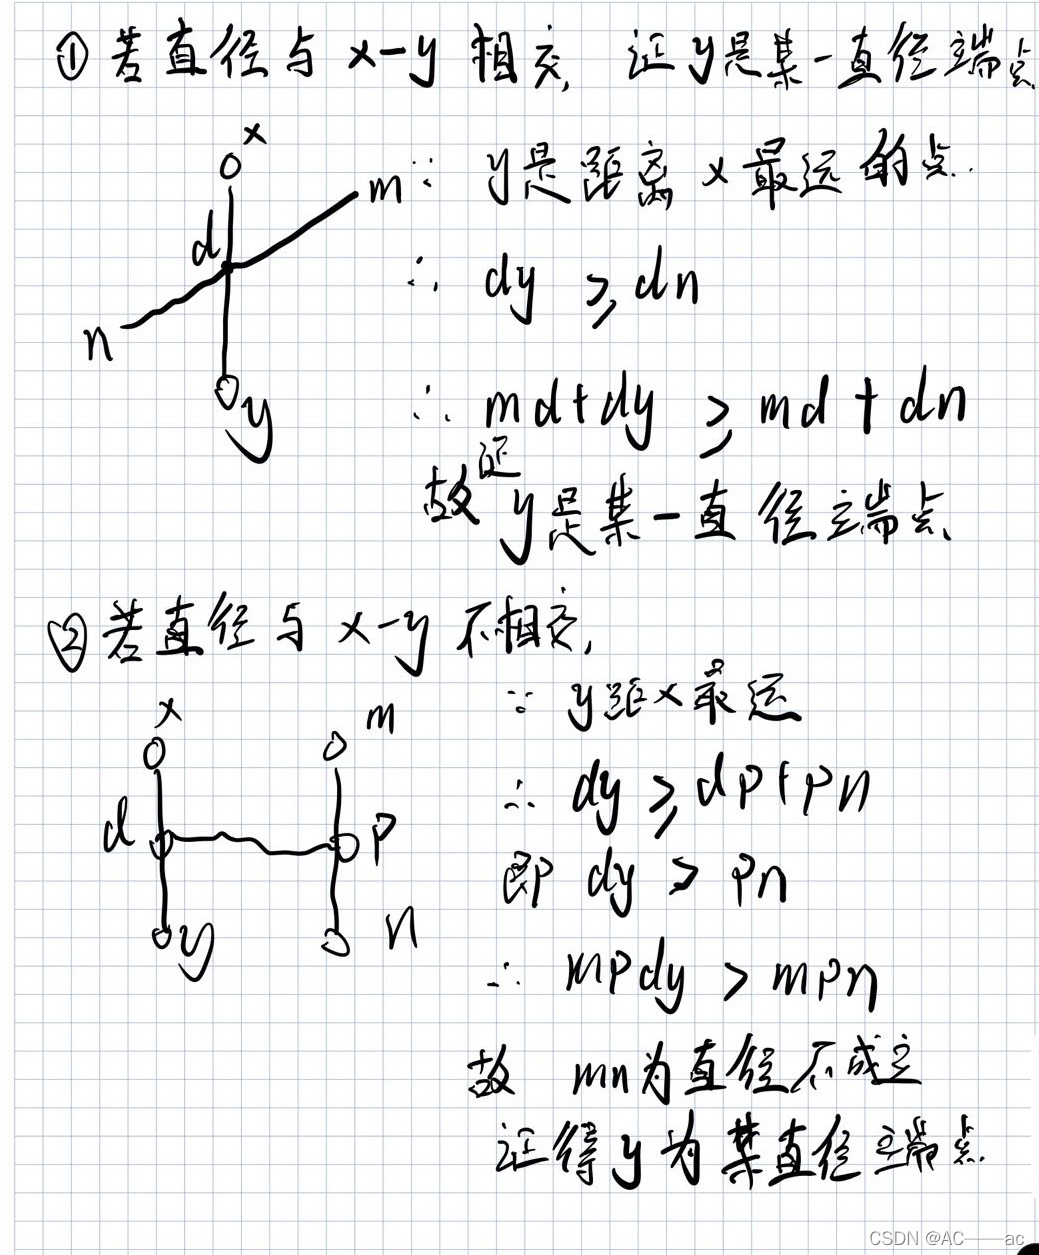 ① 若直径与 x-y 相交, 证 y是某一直径端点
x
m
d
n
y
∵ y是距离 x 最远的点.
∴ dy ≥ dn
∴ md+dy ≥ md+dn
故证 y是某一直径端点
② 若直径与 x-y 不相交,
x
m
d
P
y
n
∵ y距x最远
∴ dy ≥ dp+pn
即 dy > pn
∴ mpdy > mpn
故 mn为直径不成立
证得y为某直径端点.
CSDN @AC——ac